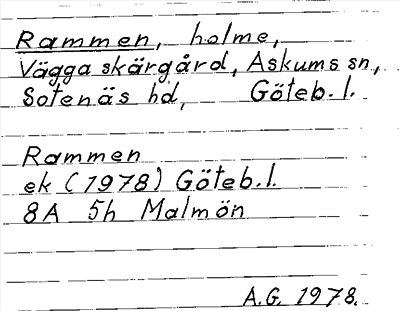 Rammen, holme,
Vägga skärgård, Askums sn,
Sotenäs hd, Göteb. l.
Rammen
ek (1978) Göteb. l.
8A 5h Malmön
A.G. 1978.